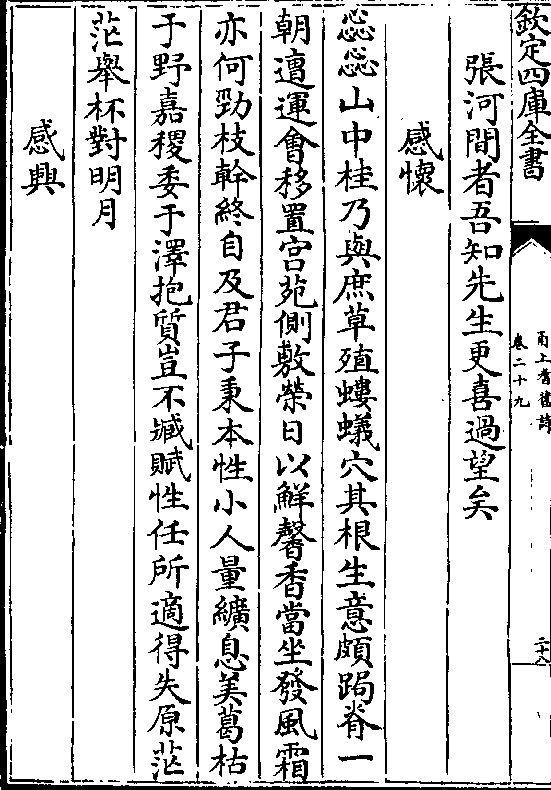 欽定四庫全書
甬上耆舊詩
卷二十九
二十八
張河間者吾知先生更喜過望矣
感懷
惢惢山中桂乃與庶草殖螻蟻穴其根生意頗跼脊一
朝遭運會移置宫苑側敷榮日以鮮馨香當坐發風霜
亦何勁枝幹終自及君子秉本性小人量纊息美葛枯
于野嘉稷委于澤抱質豈不臧賦性任所適得失原茫
茫舉杯對明月
感興